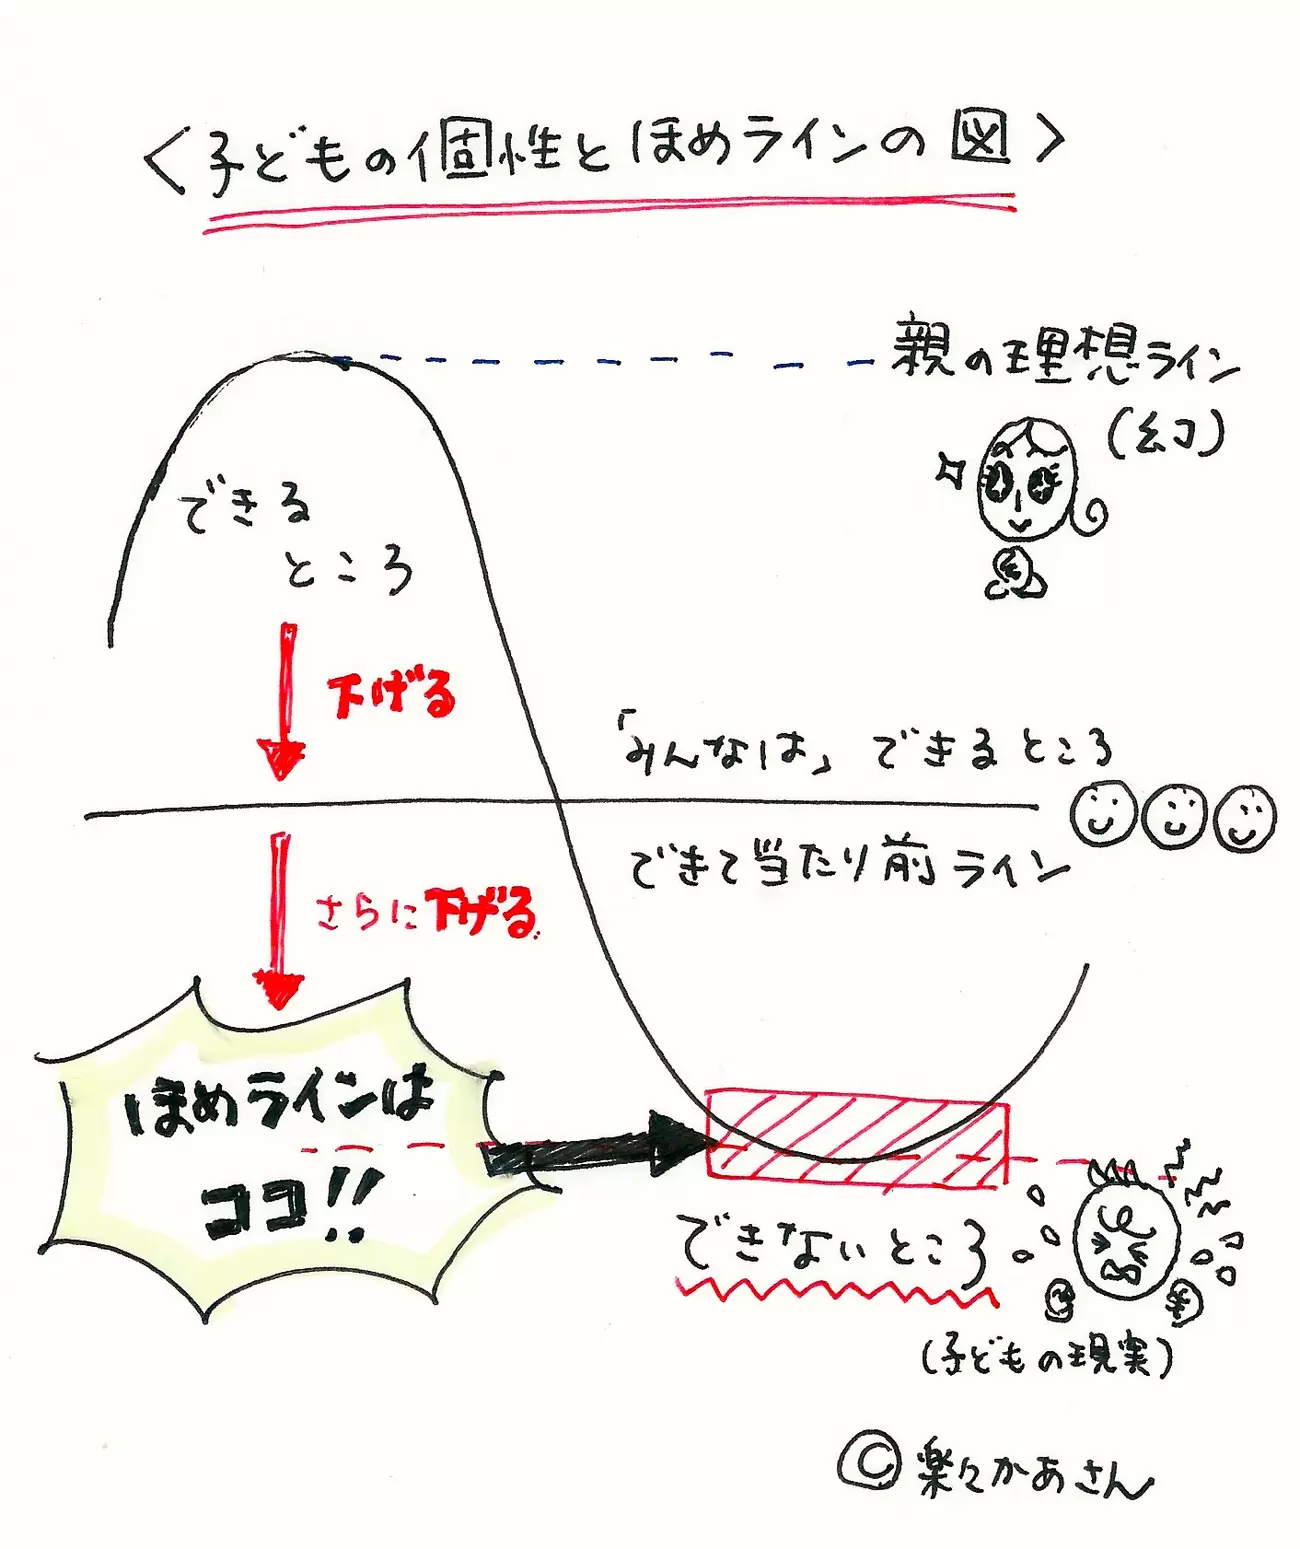 <子どもの個性とほめラインの図>
親の理想ライン
(幻)
できる
ところ
下げる
「みんなは」できるところ
できて当たり前ライン
さらに下げる
ほめラインは
ココ!!
できないところ
(子どもの現実)
©楽々かあさん